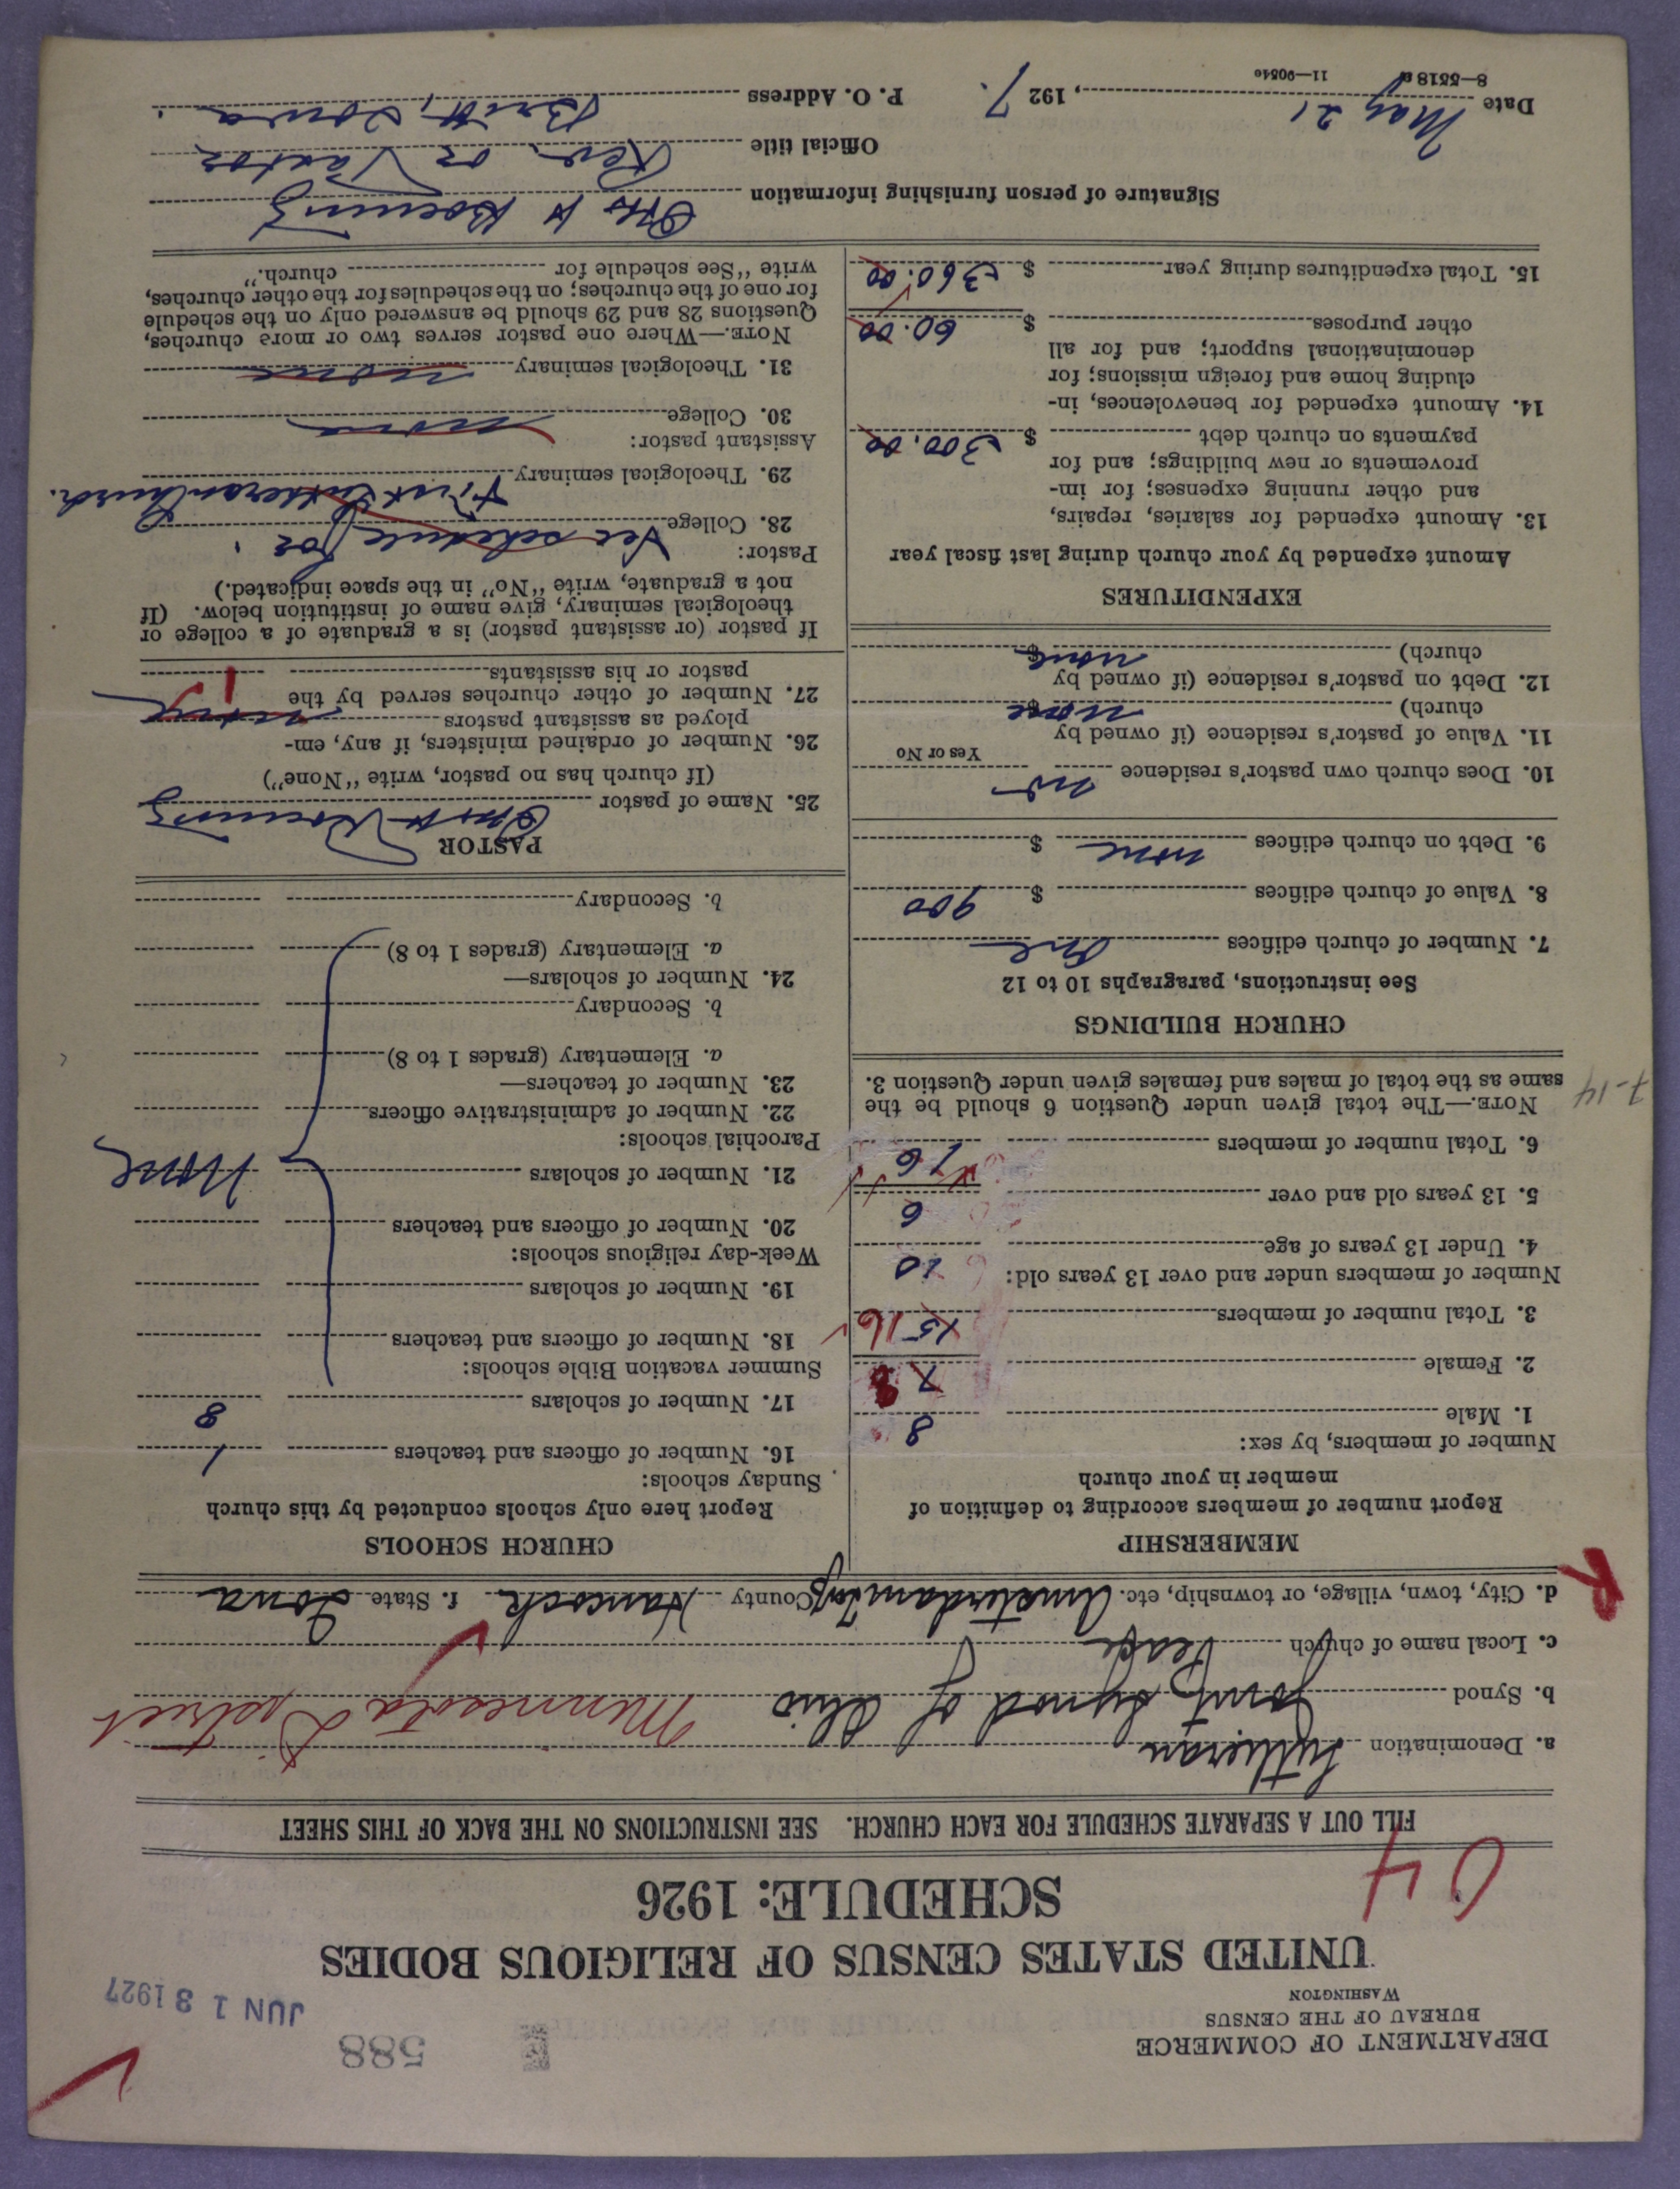 DEPARTMENT OF COMMERCE
BUREAU OF THE CENSUS
WASHINGTON
588
JUN 13 1927
UNITED STATES CENSUS OF RELIGIOUS BODIES
SCHEDULE: 1926
04
FILL OUT A SEPARATE SCHEDULE FOR EACH CHURCH. SEE INSTRUCTIONS ON THE BACK OF THIS SHEET
a. Denomination Lutheran
b. Synod Joint Synod of Ohio Minnesota District
c. Local name of church Peace
d. City, town, village, or township, etc. Amsterdam Twp County Hancock f. State Iowa
R
MEMBERSHIP
Report number of members according to definition of
member in your church
Number of members, by sex:
1. Male 8
2. Female 7 8
3. Total number of members 15 16
Number of members under and over 13 years old:
4. Under 13 years of age 10
5. 13 years old and over 6
6. Total number of members 16
NOTE.—The total given under Question 6 should be the
same as the total of males and females given under Question 3.
7-14
CHURCH BUILDINGS
See instructions, paragraphs 10 to 12
7. Number of church edifices One
8. Value of church edifices $ 900
9. Debt on church edifices none $
10. Does church own pastor's residence no
Yes or No
11. Value of pastor's residence (if owned by
church) none $
12. Debt on pastor's residence (if owned by
church) none $
EXPENDITURES
Amount expended by your church during last fiscal year
13. Amount expended for salaries, repairs,
and other running expenses; for im-
provements or new buildings; and for
payments on church debt $ 300.00
14. Amount expended for benevolences, in-
cluding home and foreign missions; for
denominational support; and for all
other purposes $ 60.00
15. Total expenditures during year $ 360.00
CHURCH SCHOOLS
Report here only schools conducted by this church
Sunday schools:
16. Number of officers and teachers 1
17. Number of scholars 8
Summer vacation Bible schools:
18. Number of officers and teachers
19. Number of scholars
Week-day religious schools:
20. Number of officers and teachers
21. Number of scholars None
Parochial schools:
22. Number of administrative officers
23. Number of teachers—
a. Elementary (grades 1 to 8)
b. Secondary
24. Number of scholars—
a. Elementary (grades 1 to 8)
b. Secondary
PASTOR
25. Name of pastor Otto H
(If church has no pastor, write "None")
26. Number of ordained ministers, if any, em-
ployed as assistant pastors none
27. Number of other churches served by the
pastor or his assistants 1
If pastor (or assistant pastor) is a graduate of a college or
theological seminary, give name of institution below. (If
not a graduate, write "No" in the space indicated.)
Pastor: See schedule for
28. College First Lutheran Church.
29. Theological seminary
Assistant pastor:
30. College none
31. Theological seminary none
NOTE.—Where one pastor serves two or more churches,
Questions 28 and 29 should be answered only on the schedule
for one of the churches; on the schedules for the other churches,
write "See schedule for church."
Signature of person furnishing information Otto H
Official title Rev. or Pastor
Date May 21, 1927. P. O. Address Britt, Iowa.
8—5518a 11—9054c